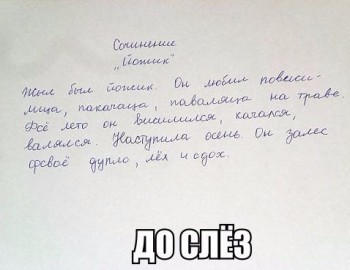 Сочинение
„Йожик"
Жыл был йожик. Он любил повиси-
лица, пакачаца, паваляца на траве.
Фсё лето он висилился, качался,
валялся. Наступила осень. Он залес
фсваё дупло, лёх и сдох.
ДО СЛЁЗ